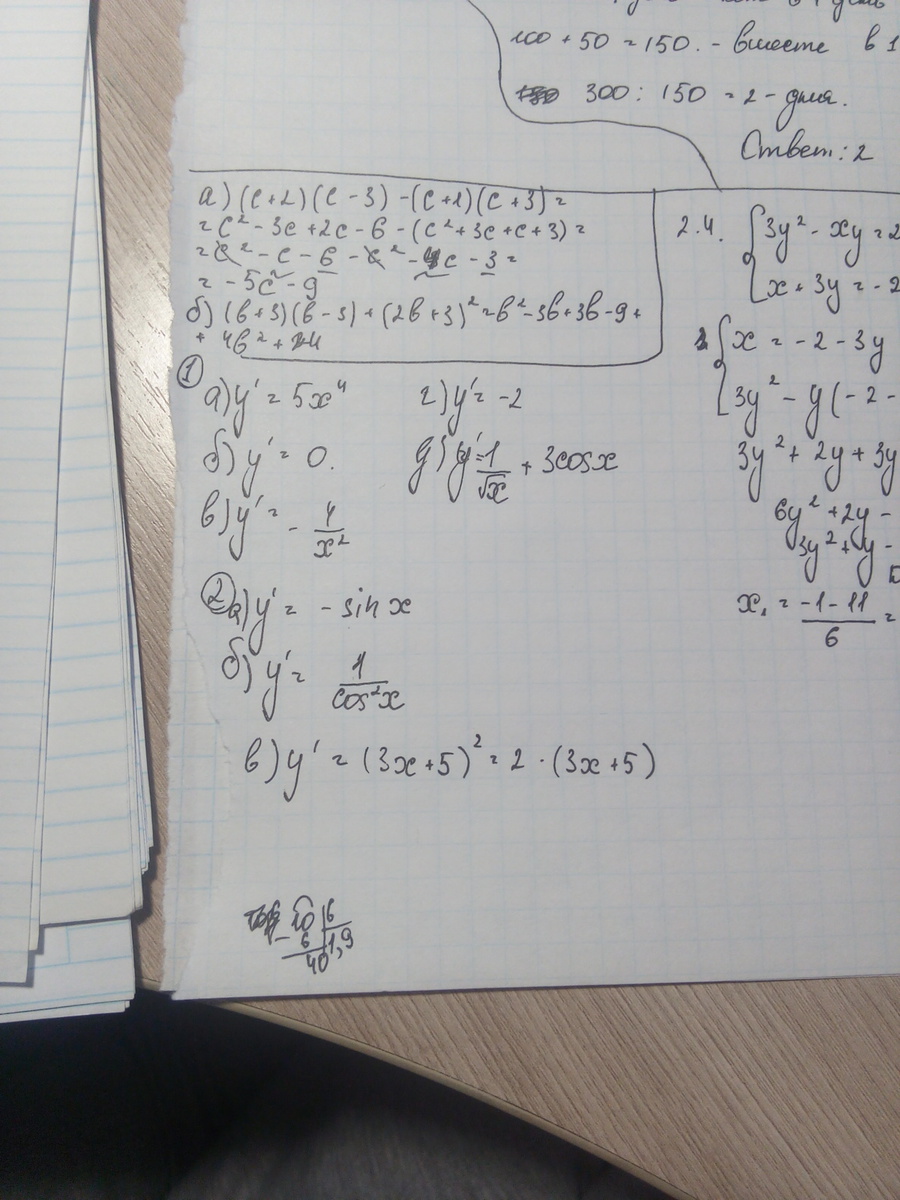 100 + 50 = 150. - вместе в 1
300 : 150 = 2 - дня.
Ответ: 2
а) (c+2)(c-3) - (c+1)(c+3) =
= c² - 3c + 2c - 6 - (c² + 3c + c + 3) =
= c² - c - 6 - c² - 4c - 3 =
= - 5c - 9
б) (b+3)(b-3) + (2b+3)² = b² - 3b + 3b - 9 +
+ 4b² +
2.4. { 3y² - xy = 2
x + 3y = -2
{ x = -2 - 3y
3y² - y (-2 -
3y² + 2y + 3y
6y² + 2y -
3y² + y -
x₁ = \frac{-1-11}{6} =
① а) y' = 5x⁴
б) y' = 0.
в) y' = - \frac{1}{x²}
г) y' = -2
д) y' = \frac{1}{√x} + 3cosx
② а) y' = - sin x
б) y' = \frac{1}{cos²x}
в) y' = (3x+5)² = 2 · (3x+5)
10 | 6
- 6 | 1,9
40